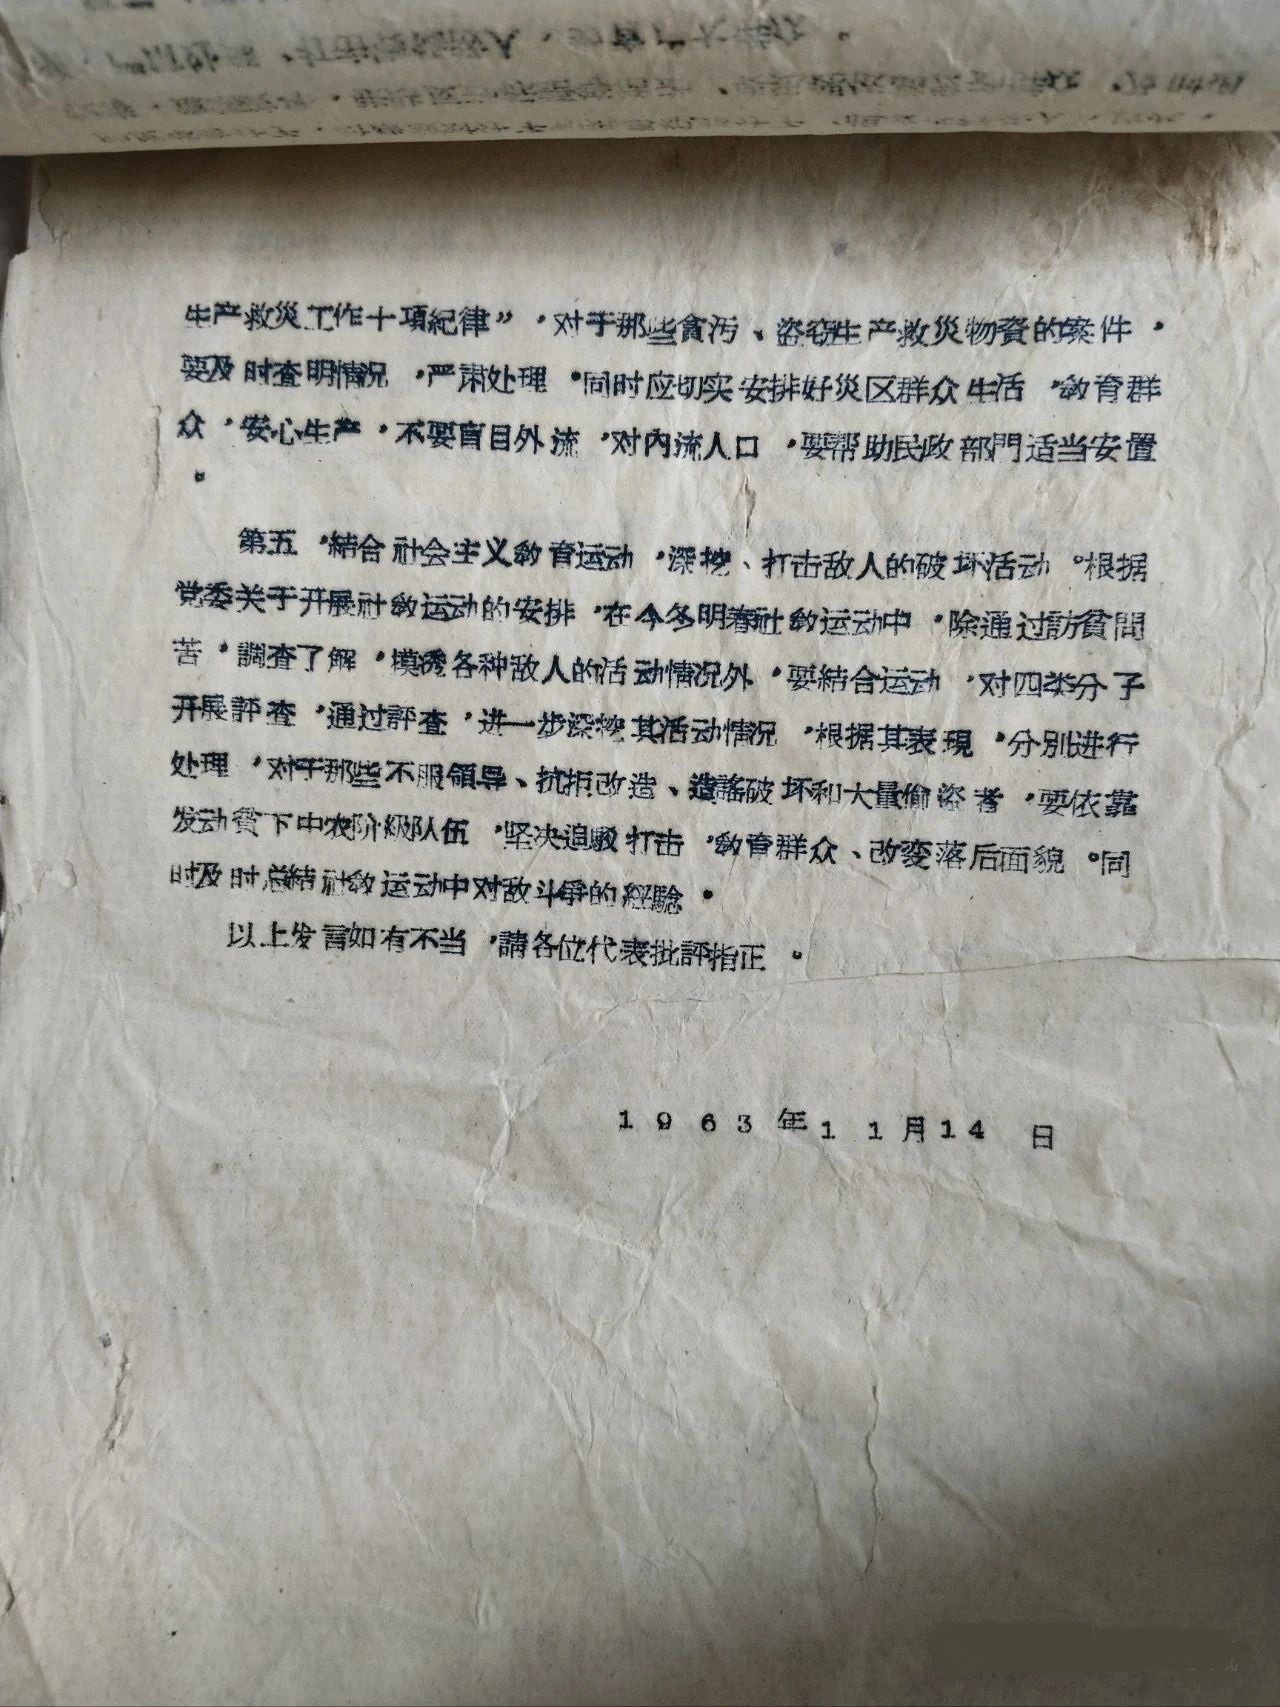 生产救災工作十項紀律”，对于那些貪污、盗窃生产救災物資的案件，
要及时查明情况，严肃处理。同时应切实安排好災区群众生活，敎育群
众，安心生产，不要盲目外流，对内流人口，要帮助民政部門适当安置
。
第五，結合社会主义敎育运动，深挖、打击敌人的破坏活动。根据
党委关于开展社敎运动的安排，在今冬明春社敎运动中，除通过訪貧問
苦，調查了解，摸透各种敌人的活动情况外，要結合运动，对四类分子
开展評查，通过評查，进一步深挖其活动情况，根据其表現，分别进行
处理，对于那些不服領导、抗拒改造、造謠破坏和大量偷盗者，要依靠
发动贫下中农阶級队伍，坚决追駁打击，敎育群众、改变落后面貌。同
时及时总結社敎运动中对敌斗爭的經驗。
以上发言如有不当，請各位代表批評指正。
1963年11月14日